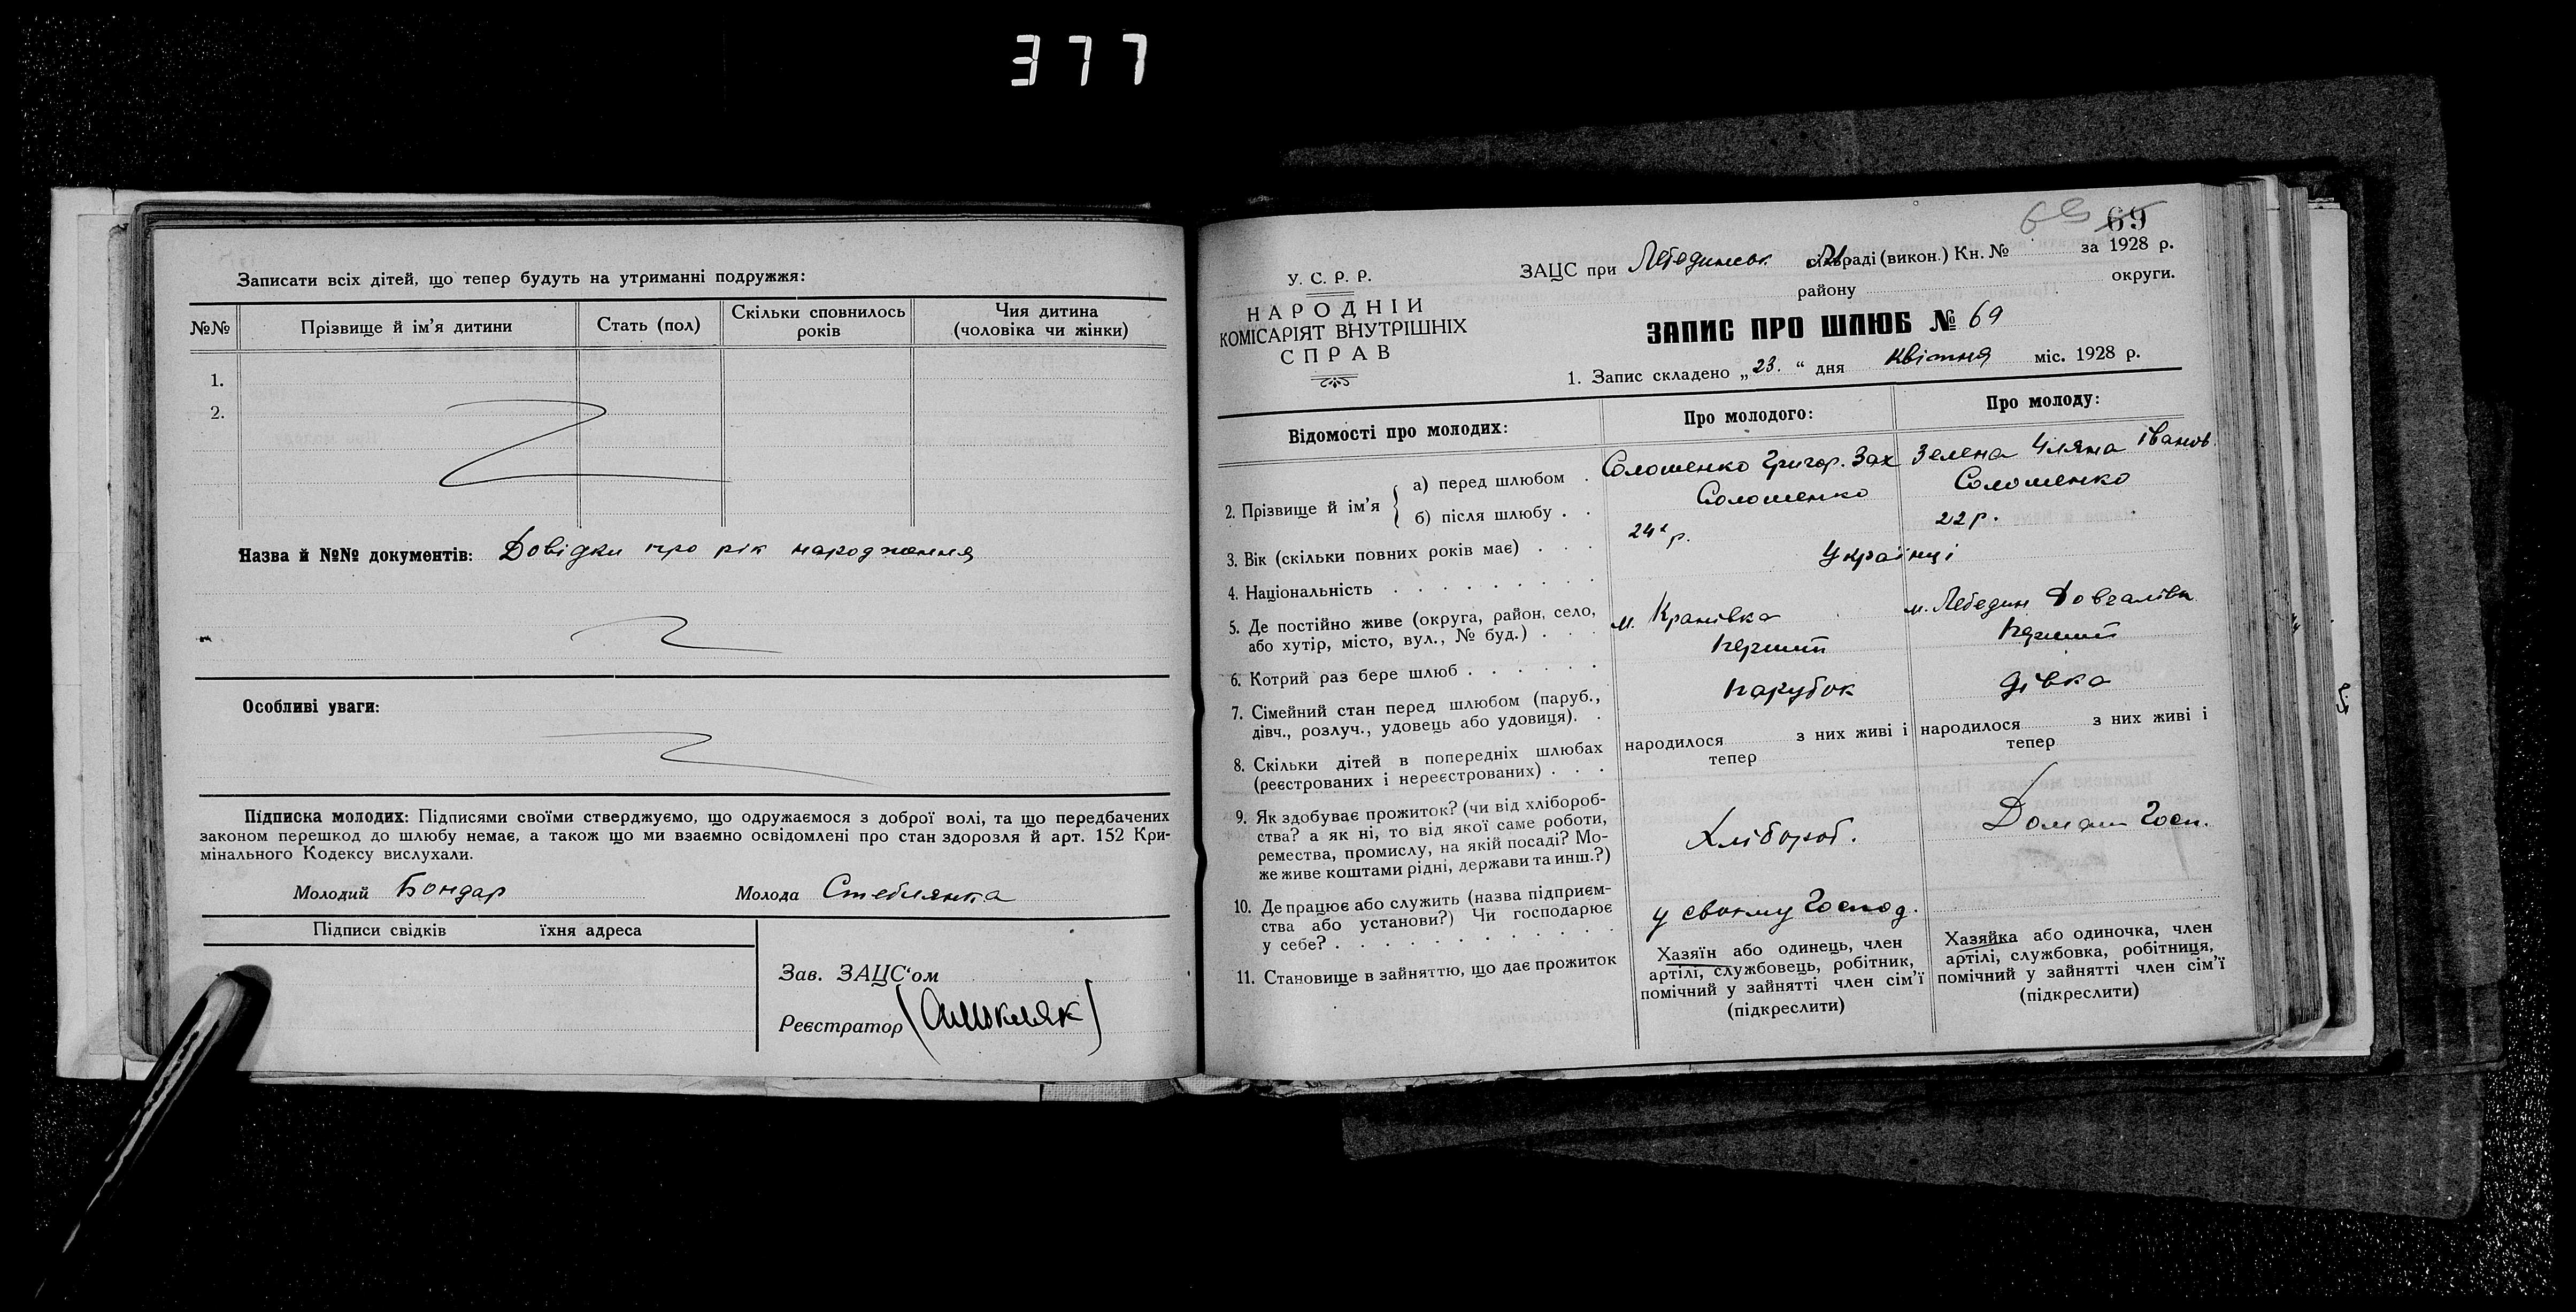 377
Записати всіх дітей, що тепер будуть на утриманні подружжя:
№№ Прізвище й ім'я дитини Стать (пол) Скільки сповнилось років Чия дитина (чоловіка чи жінки)
1.
2.
Назва й №№ документів: Довідки про рік народження
Особливі уваги:
Підписка молодих: Підписями своїми стверджуємо, що одружаємося з доброї волі, та що передбачених
законом перешкод до шлюбу немає, а також що ми взаємно освідомлені про стан здоровля й арт. 152 Кри-
мінального Кодексу вислухали.
Молодий Бондар Молода Стеблянка
Підписи свідків їхня адреса
Зав. ЗАЦС'ом
Реєстратор
69 69
У. С. Р. Р.
НАРОДНІЙ
КОМІСАРІЯТ ВНУТРІШНІХ
СПРАВ
ЗАЦС при Лебединськ. сільраді (викон.) Кн. № за 1928 р.
району округи.
ЗАПИС ПРО ШЛЮБ № 69
1. Запис складено „23." дня квітня міс. 1928 р.
Відомості про молодих: Про молодого: Про молоду:
2. Прізвище й ім'я { а) перед шлюбом . Солошенко Григор. Зах Зелена Уляна Іванов.
б) після шлюбу . . Солошенко Солошенко
3. Вік (скільки повних років має) . . . 24 р. 22 р.
4. Національність . . . . . . . . Українці
5. Де постійно живе (округа, район, село,
або хутір, місто, вул., № буд.) . . . м. Лебедин
6. Котрий раз бере шлюб . . . . . . перший перший
7. Сімейний стан перед шлюбом (паруб.,
дівч., розлуч., удовець або удовиця). . парубок дівка
8. Скільки дітей в попередніх шлюбах
(реєстрованих і нереєстрованих) . . .
народилося з них живі і
тепер
народилося з них живі і
тепер
9. Як здобуває прожиток? (чи від хлібороб-
ства? а як ні, то від якої саме роботи,
ремества, промислу, на якій посаді? Мо-
же живе коштами рідні, держави та инш.?)
Хлібороб.
Домаш госп.
10. Де працює або служить (назва підприєм-
ства або установи?) Чи господарює
у себе? . . . . . . . . . . . .
у своєму господ.
11. Становище в зайняттю, що дає прожиток
Хазяїн або одинець, член
артілі, службовець, робітник,
помічний у зайнятті член сім'ї
(підкреслити)
Хазяйка або одиночка, член
артілі, службовка, робітниця,
помічний у зайнятті член сім'ї
(підкреслити)